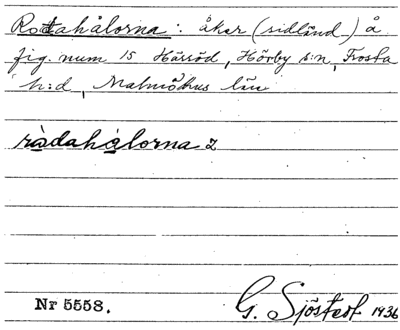 Rodahålorna: åker (sidländ) å
fig. num 15 Härröd, Hörby s:n, Frosta
h:d, Malmöhus län
rådahålorna 2
Nr 5558.
G. Sjöstedt 1936